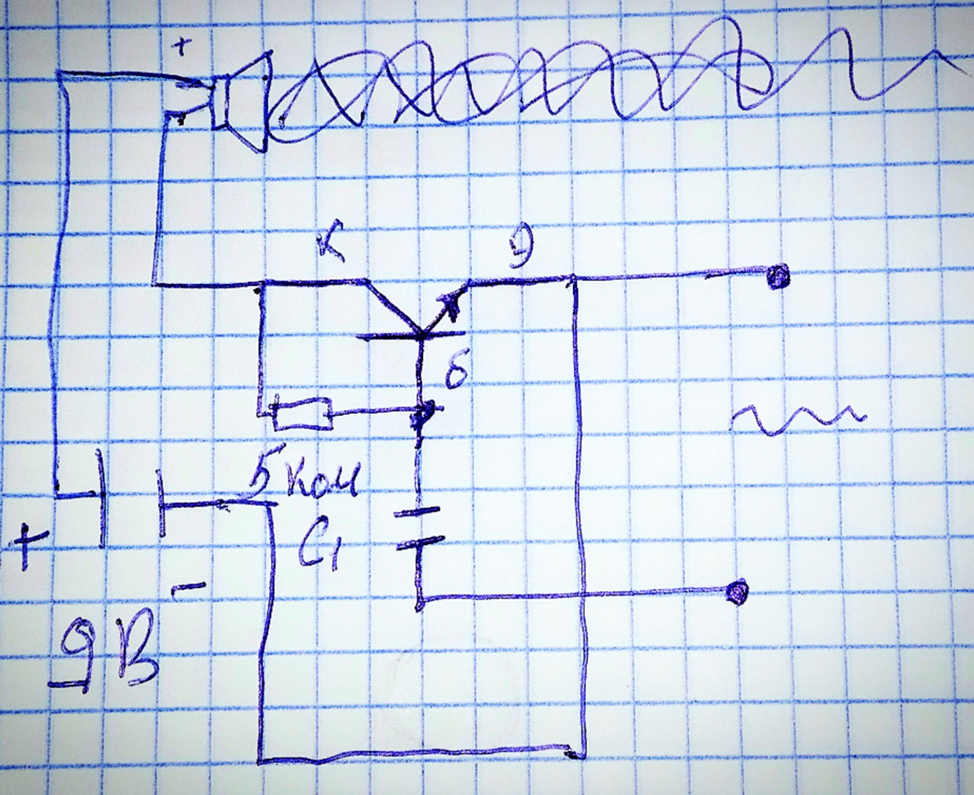 +
-
К
Э
б
5 Ком
C1
+
-
9В